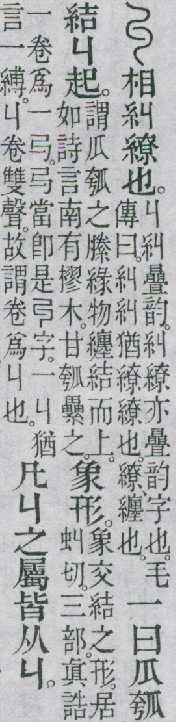 相糾繚也。丩糾曡韵。糾繚亦曡韵字也。毛
傳曰。糾糾猶繚繚也。繚纏也。一曰瓜瓠
結丩起。謂瓜瓠之縢緣物纏結而上。
如詩言南有樛木。甘瓠纍之。象形。象交結之形。居
虯切。三部。真誥
一卷爲一弓。弓當卽是字。一丩猶
言一縛。丩卷雙聲。故謂卷爲丩也。凡丩之屬皆从丩。